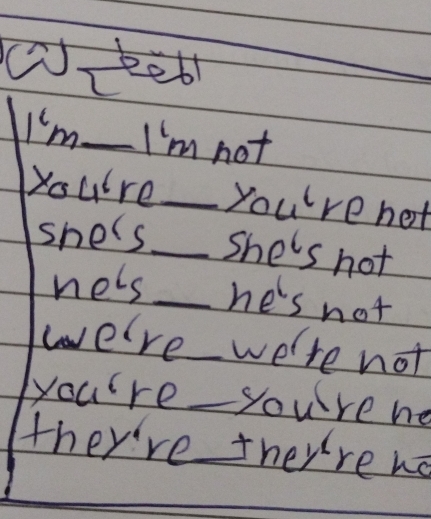 I'm — I'm not
you're — you're not
she's — she's not
he's — he's not
we're — we're not
you're — you're no
they're — they're no